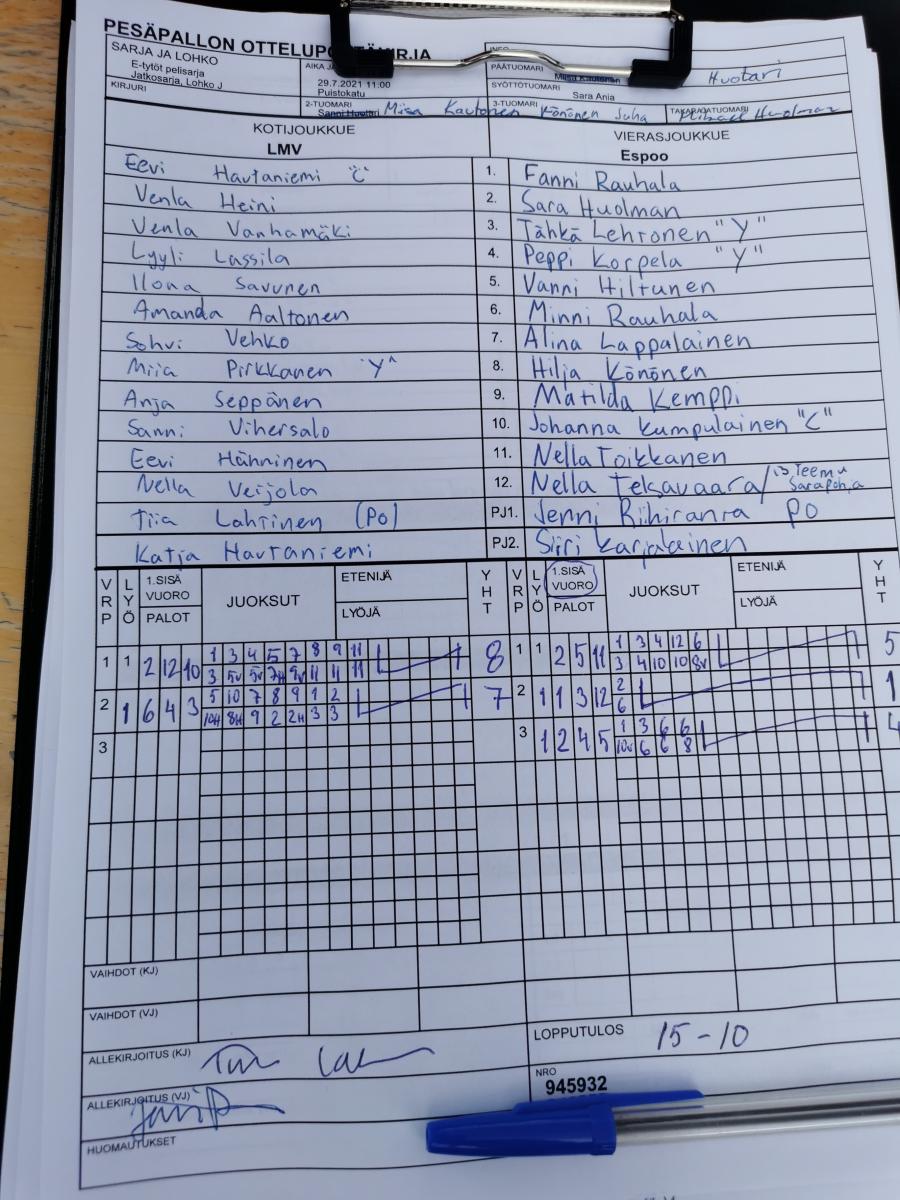 PESÄPALLON OTTELUPÖYTÄKIRJA
SARJA JA LOHKO
E-tytöt pelisarja
Jatkosarja, Lohko J
KIRJURI
AIKA JA
29.7.2021 11:00
Puistokatu
PÄÄTUOMARI
Huotari
SYÖTTÖTUOMARI
Sara Ania
2-TUOMARI
Sanni Huotari Miisa Kautonen
3-TUOMARI
Könönen Juha
TAKARAJATUOMARI
Huolman
KOTIJOUKKUE
LMV
VIERASJOUKKUE
Espoo
Eevi Hautaniemi "C" 1. Fanni Rauhala
Venla Heini 2. Sara Huolman
Venla Vanhamäki 3. Tähkä Lehtonen "Y"
Lyyli Lassila 4. Peppi Korpela "Y"
Ilona Savunen 5. Vanni Hiltunen
Amanda Aaltonen 6. Minni Rauhala
Sohvi Vehko 7. Alina Lappalainen
Miia Pirkkanen "Y" 8. Hilja Könönen
Anja Seppänen 9. Matilda Kemppi
Sanni Vihersalo 10. Johanna Kumpulainen "C"
Eevi Hänninen 11. Nella Toikkanen
Nella Veijola 12. Nella Tekavaara/ Teemu Sarapohja
Tiia Lahtinen (Po) PJ1. Jenni Riihiranta Po
Katja Hautaniemi PJ2. Siiri Karjalainen
VRP LYÖ 1.SISÄ VUORO PALOT JUOKSUT ETENIJÄ LYÖJÄ YHT
VRP LYÖ 1.SISÄ VUORO PALOT JUOKSUT ETENIJÄ LYÖJÄ YHT
1 1 2 12 10 1 3 4 5 7 8 9 11 8
3 5v 5v 7H 9v 11 11 11
1 1 2 5 11 1 3 4 12 6 5
3 4 10 10 8v
2 1 6 4 3 5 10 7 8 9 1 2 7
10H 8H 9 2 2H 3 3
2 1 1 3 12 2 1
6
3
3 1 2 4 5 1 3 6 6 4
10v 6 6 8
VAIHDOT (KJ)
VAIHDOT (VJ)
ALLEKIRJOITUS (KJ)
LOPPUTULOS 15-10
ALLEKIRJOITUS (VJ)
NRO
945932
HUOMAUTUKSET